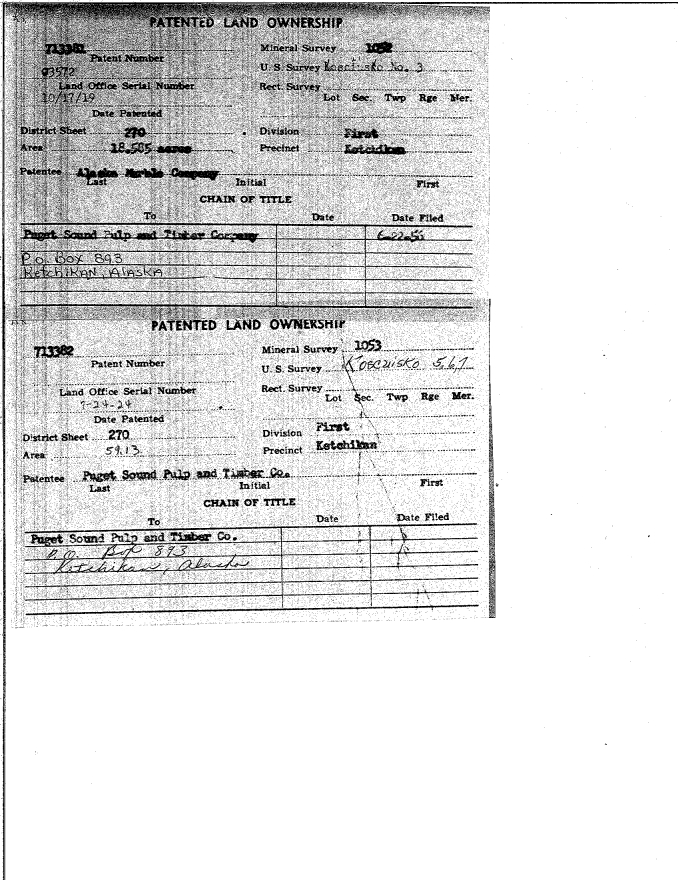 PATENTED LAND OWNERSHIP
713381 Mineral Survey 1052
Patent Number
03572 U. S. Survey Kosciusko No. 3
Land Office Serial Number Rect. Survey
10/17/19 Lot Sec. Twp Rge Mer.
Date Patented
District Sheet 270 Division First
Area 18.585 acres Precinct Ketchikan
Patentee Alaska Marble Company
Last Initial First
CHAIN OF TITLE
To Date Date Filed
Puget Sound Pulp and Timber Company
P.O. Box 893
Ketchikan, Alaska
PATENTED LAND OWNERSHIP
713382 Mineral Survey 1053
Patent Number U. S. Survey Koscuisko 5,6,7
Land Office Serial Number Rect. Survey
7-24-24 Lot Sec. Twp Rge Mer.
Date Patented
District Sheet 270 Division First
Area 59.13 Precinct Ketchikan
Patentee Puget Sound Pulp and Timber Co.
Last Initial First
CHAIN OF TITLE
To Date Date Filed
Puget Sound Pulp and Timber Co.
P.O. Box 893
Ketchikan, Alaska